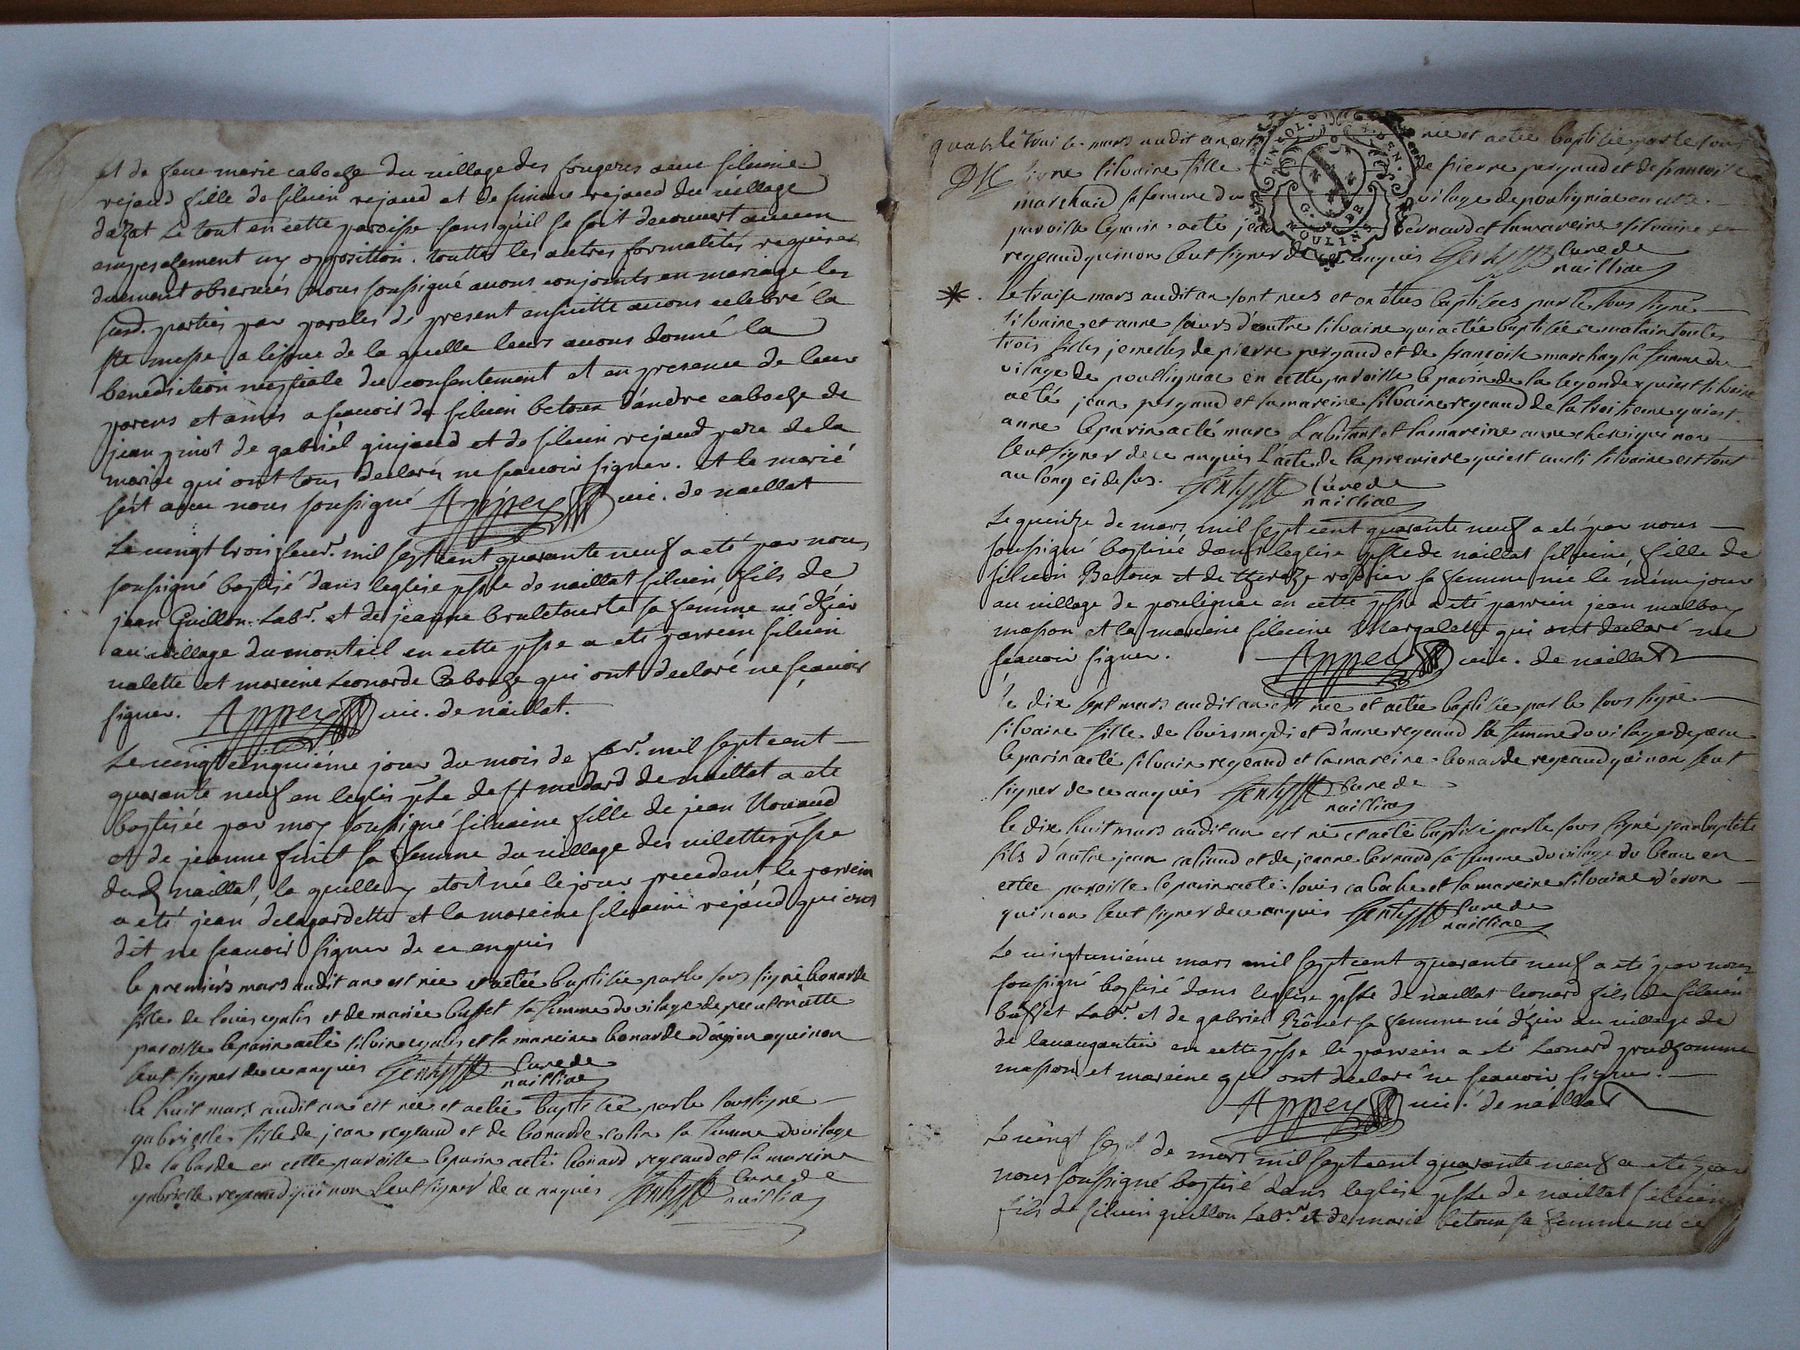 et de feue marie caboche du village des fougeres avec silvaine
rejaud fille de silvain rejaud et de simone rejaud du village
dazat le tout en cette paroisse sans qu'il se soit decouvert aucun
empeschement ny opposition. toutes les autres formalités requises
duement observées nous soussigné avons conjoints en mariage les
susd. parties par paroles de present ensuitte avons celebré la
ste messe a lissue de la quelle leurs avons donné la
benediction nuptiale du consentement et en presence de leur
parens et amis a scavoir de silvain betoux d'andré caboche de
jean pinot de gabriel et de silvain rejaud pere de la
mariée qui ont tous declarés ne scavoir signer. et le marié
s'est avec nous soussigné Appey vic. de naillat
Le vingt trois feur. mil sept cent quarante neuf a eté par nous
soussigné baptisé dans leglise psse de naillat silvain fils de
jean Guillon Labr. et de jeanne bruletourte sa femme né d'hier
au village du monteil en cette psse a eté parrein silvain
valette et mareine Leonarde Caboche qui ont declaré ne scavoir
signer. Appey vic. de naillat.
Le vingt cinquieme jour du mois de fevr. mil sept cent
quarante neuf en leglis psse de st medard de naillat a eté
baptisée par moy soussigné silvaine fille de jean
et de jeanne sa femme du village des vilettes psse
du d naillat, la quelle y etoit née le jour precedent le parrein
a eté jean delagardette et la mareine silvaine rejaud qui ont
dit ne scavoir signer de ce enquis
le premiers mars audit an est née et a etée baptisée par le sous signé leonarde
fille de louis et de mariée busset sa femme du vilage de
paroisse le parin a eté silvin et la mareine leonarde qui non
seut signer de ce anquis Curé de
nailliac
le huit mars audit an est née et a etée baptisée par le sousligné
gabrielle fille de jean reyjaud et de leonarde colin sa femme du vilage
de la barde en cette paroisse le parin a eté leonard reyeaud et la mareine
gabrielle reyeaud qui non seut signer de ce anquis Curé de
naillia
quat le traise mars audit an est née et a etée baptisée par le sous
signe silvaine fille de pierre peryaud et de francoise
marchaud sa femme du vilage de poulignac en cette
paroisse le parin a eté jean bernaud et la mareine silvaine
reyeaud qui non seut signer de ce anquis Curé de
naillac
* Le traise mars audit an sont nees et on etées baptisées par le sous signe
silvaine et anne sœurs d'eautre silvaine qui a etée baptisée ce matain toutes
trois filles jemelles de pierre peryaud et de francoise marchay sa femme du
vilage de poulligniac en cette paroisse le parin de la segonde qui est silvaine
a eté jean peryaud et la mareine silvaine reyeaud de la troisieme qui est
anne le parin a eté marc Labitant et la mareine anne qui non
seut signer de ce anquis L'acte de la premiere qui est ausi silvaine est tout
au long ci desus. Curé de
nailliac
Le quinze de mars mil sept cent quarante neuf a eté par nous
soussigné baptisée dans leglise psse de naillat silvaine fille de
silvain Betoux et de sa femme née le même jour
au village de poulignac en cette psse a eté parrein jean malbay
masson et la mareine silvaine Margalette qui ont declaré ne
scavoir signer. Appey vic. de naillat
le dix sept mars audit an est née et a etée baptisée par le sous signé
silvaine fille de louis et d'anne reyeaud sa femme du vilage
le parin a eté silvain reyeaud et la mareine leonarde reyeaud qui non seut
signer de ce anquis Curé de
nailliac
le dix huit mars audit an est né et a eté baptisé par le sous signé jean baptiste
fils d'autre jean caliaud et de jeanne bernaud sa femme du vilage du beau en
cette paroisse le parin a eté louis caboche et la mareine silvaine
qui non seut signer de ce anquis Curé de
nailliac
Le vingtunième mars mil sept cent quarante neuf a eté par nous
soussigné baptisé dans leglise psse de naillat leonard fils de silvain
busset Labr. et de gabriel sa femme né d'hier au village de
de en cette psse le parrein a eté Leonard prudhomme
masson et mareine qui ont declaré ne scavoir signer.
Appey vic. de naillat
Le vingt sept de mars mil sept cent quarante neuf a eté par
nous soussigné baptisé dans leglise psse de naillat silvain
fils de silvain guillon Labr. et de marie betoux sa femme né ce